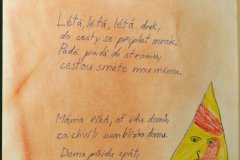 Létá, létá, létá drak,
do cesty se připlet mrak.
Padá, padá do stromu,
cestou smete mou mámu.
Máma říká, ať jdu domů,
za chvíli jsem blízko domu.
Doma půjdu spát,